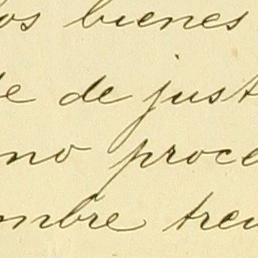 os bienes
e de just
no proce
mbre trei